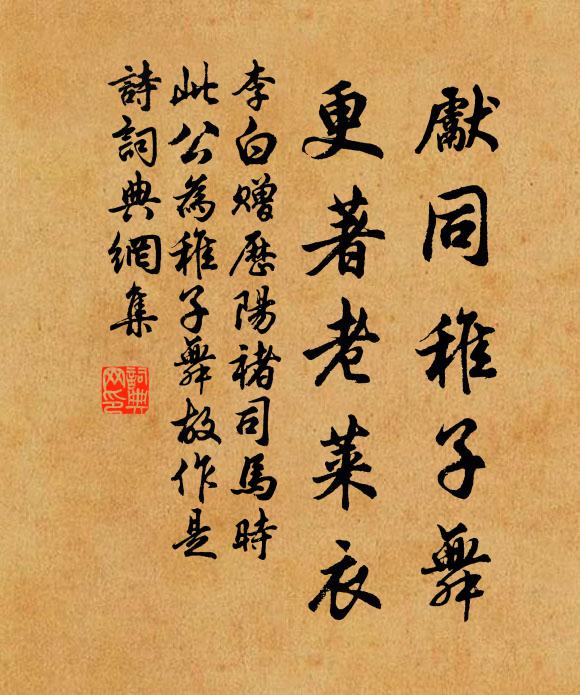 獻同稚子舞
更著老萊衣
李白贈歷陽褚司馬時
此公為稚子舞故作是
詩詞典網集
詞典
网印